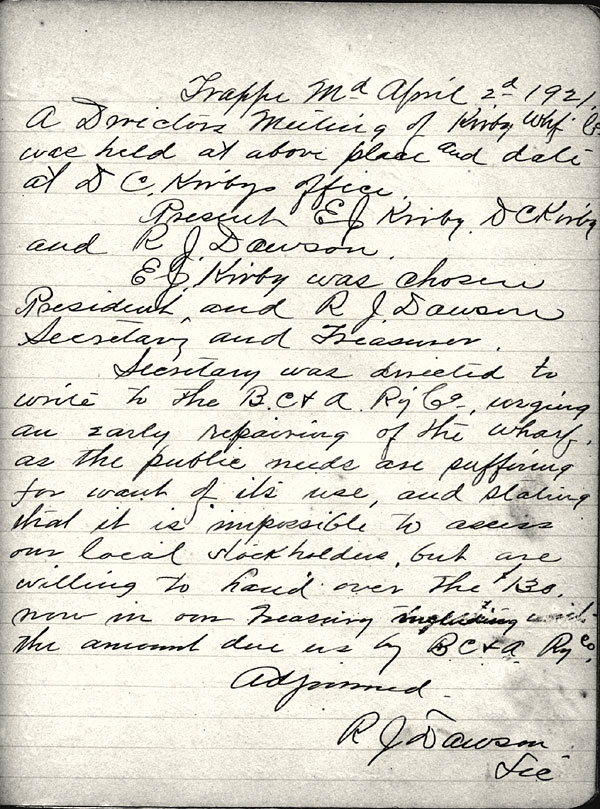 Trappe Md April 2d 1921.
A Directors Meeting of Kirby Whf Co
was held at above place and date
at D C. Kirbys office.
Present E J Kirby. D C Kirby
and R J Dawson.
E J. Kirby was chosen
President, and R J. Dawson
Secretary and Treasurer.
Secretary was directed to
write to the B. C & A. Ry Co., urging
an early repairing of the wharf,
as the public needs are suffering
for want of its use, and stating
that it is impossible to assess
our local stockholders, but are
willing to hand over the $130.
now in our treasury
the amount due us by B C & A Ry Co.
Adjourned.
R J Dawson
Sec